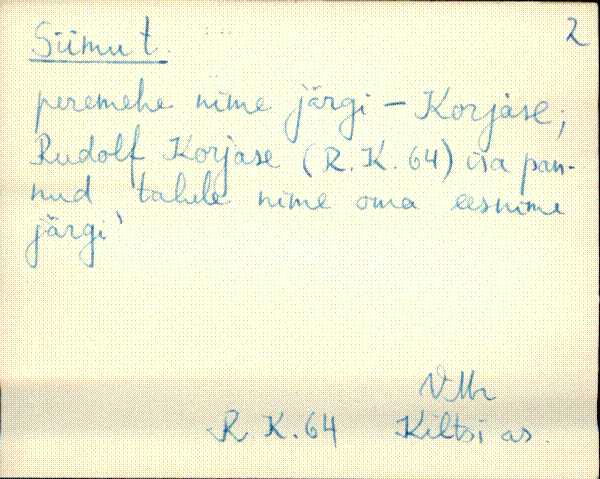 Siimu t. 2
peremehe nime järgi – Korjase;
Rudolf Korjase (R.K. 64) isa pan-
nud talule nime oma eesnime
järgi'
VMr
R K. 64 Kiltsi as.